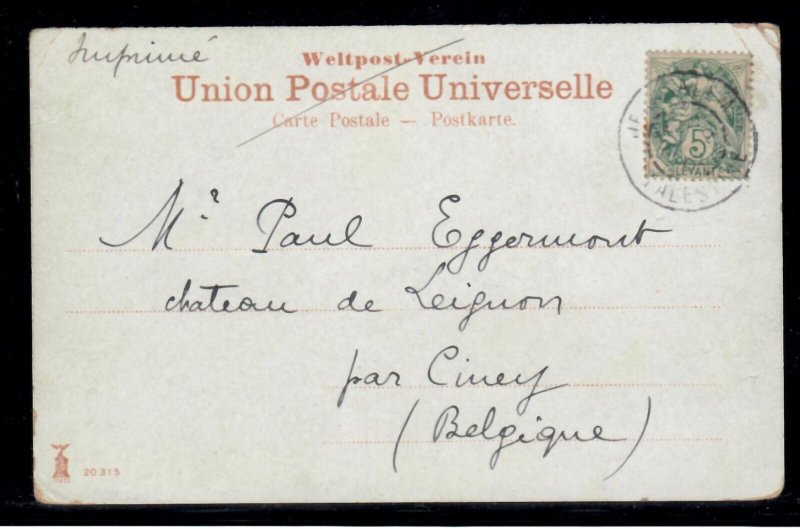 Imprimé
Weltpost-Verein
Union Postale Universelle
Carte Postale — Postkarte.
5
LEVANT
PALESTINE
Mr Paul Eggermont
chateau de Leignon
par Ciney
(Belgique)
20315